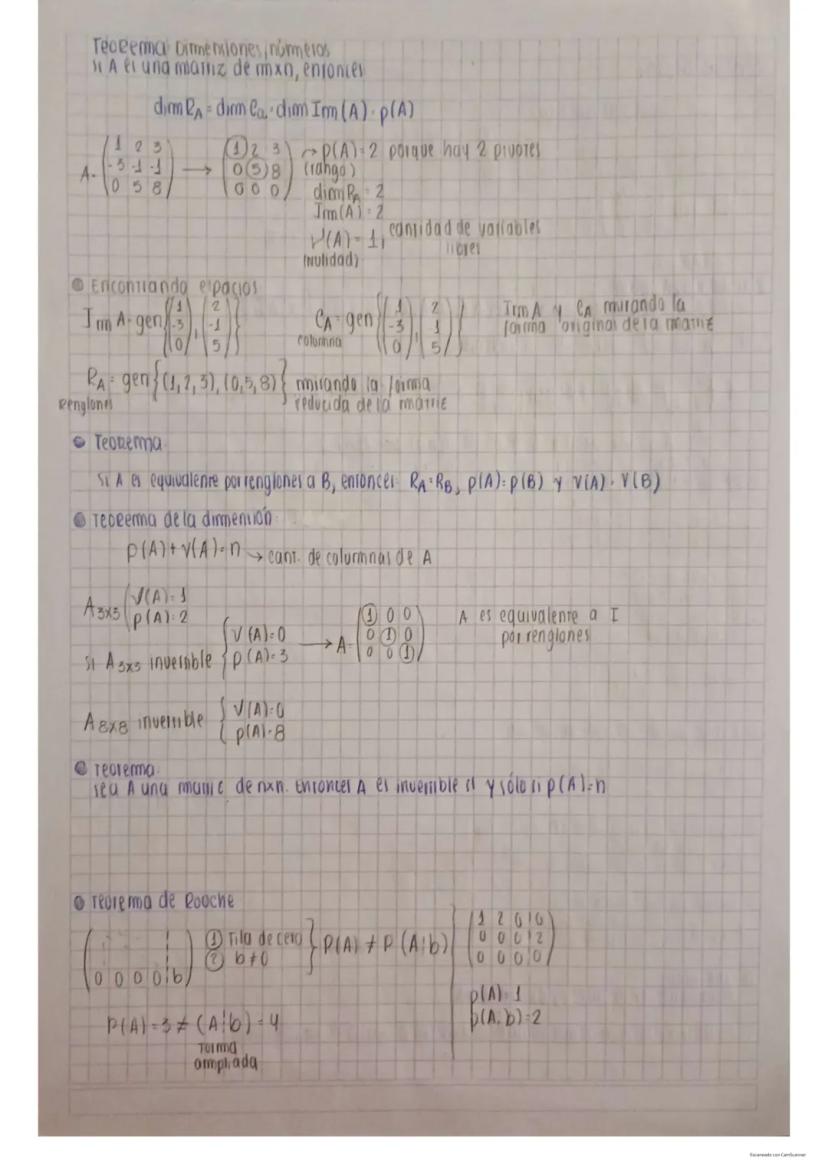 Teorema Dimensiones, números
si A es una matriz de mxn, entonces
dim RA = dim Ca = dim Im(A) = p(A)
A = (1 2 3 / -3 -1 -1 / 0 5 8) → (1 2 3 / 0 5 8 / 0 0 0) → p(A)=2 porque hay 2 pivotes
(rango)
dim RA = 2
Im(A) = 2
ν(A) = 1, cantidad de variables libres
(Nulidad)
Encontrando espacios
Im A = gen {(1 -3 0), (2 -1 5)}
CA = gen {(1 -3 0), (2 1 5)}
columna
Im A y CA mirando la
forma original de la matriz
RA = gen {(1,2,3), (0,5,8)} mirando la forma
Renglones reducida de la matriz
Teorema
Si A es equivalente por renglones a B, entonces RA=RB, p(A)=p(B) y V(A)=V(B)
Teorema de la dimensión
p(A)+V(A)=n → cant. de columnas de A
A3x3 { V(A)=1
p(A)=2
si A3x3 invertible { V(A)=0
p(A)=3
→ A = (1 0 0 / 0 1 0 / 0 0 1)
A es equivalente a I
por renglones
A8x8 invertible { V(A)=0
p(A)=8
Teorema
sea A una matriz de nxn. Entonces A es invertible si y sólo si p(A)=n
Teorema de Rooche
(0 0 0 0 | b)
① Fila de cero
② b≠0
} P(A) ≠ P(A|b)
(1 2 0 | 0 / 0 0 0 | 2 / 0 0 0 | 0)
p(A)=3 ≠ (A|b)=4
forma
ampliada
p(A)=1
p(A.b)=2
Escaneado con CamScanner